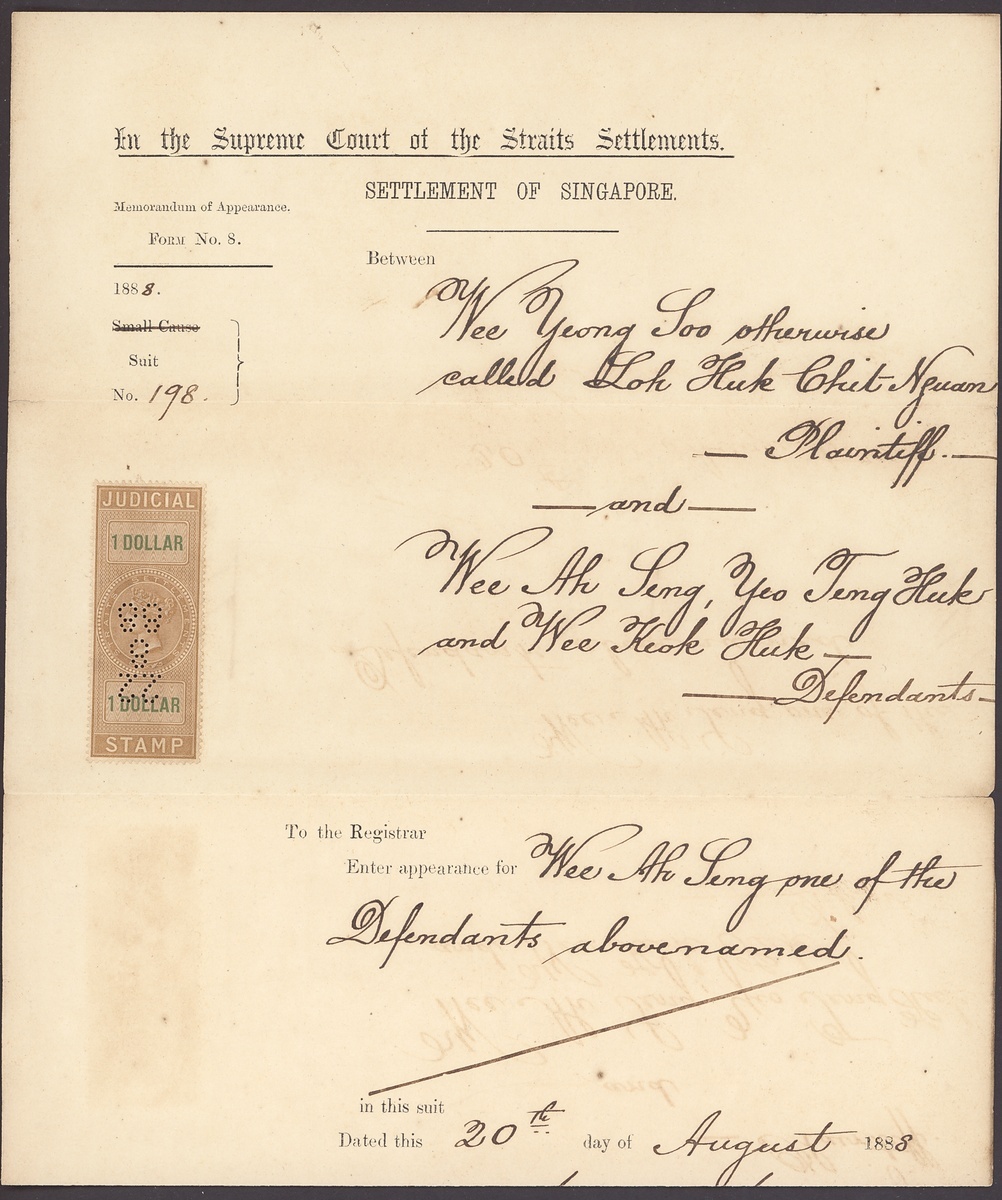 In the Supreme Court of the Straits Settlements.
SETTLEMENT OF SINGAPORE.
Memorandum of Appearance.
FORM No. 8.
Between
1888.
Small Cause
Suit
No. 198.
Wee Yeong Soo otherwise
called Loh Huk Chit Nguan
Plaintiff.
and
Wee Ah Seng, Yeo Teng Huk
and Wee Keok Huk
Defendants
JUDICIAL
1 DOLLAR
88
8
22
1 DOLLAR
STAMP
To the Registrar
Enter appearance for Wee Ah Seng one of the
Defendants abovenamed.
in this suit
Dated this 20th day of August 1888